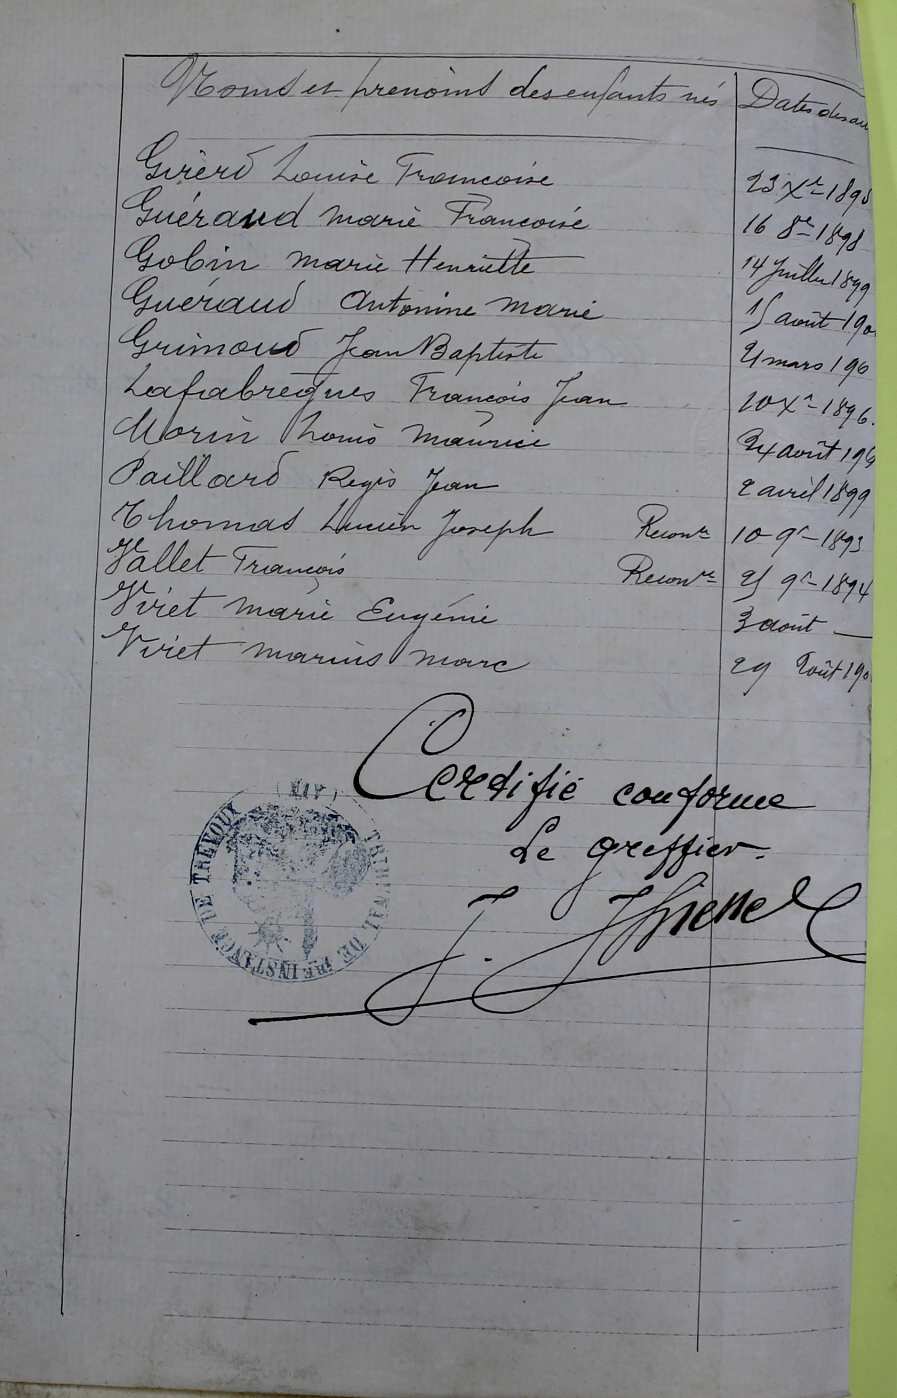 Noms et prenoms des enfants nés Dates des
Girerd Louise Francoise 23 Xre 1898
Guéraud Marie Francoise 16 8re 1898
Gobin Marie Henriette 14 Juillet 1899
Guéraud Antonine Marie 15 août 190
Grimoud Jean Baptiste 21 mars 190
Lafabrègues François Jean 10 Xre 1896.
Morin Louis Maurice 24 août 19
Paillard Regis Jean 2 avril 1899
Thomas Lucien Joseph Reconre 10 9re 1893
Vallet François Reconre 25 9re 1894
Viret Marie Eugénie 3 août —
Viret Marius Marc 29 Août 190
Certifié conforme
Le greffier.
J.
TRIBUNAL DE 1RE INSTANCE DE TREVOUX (AIN)